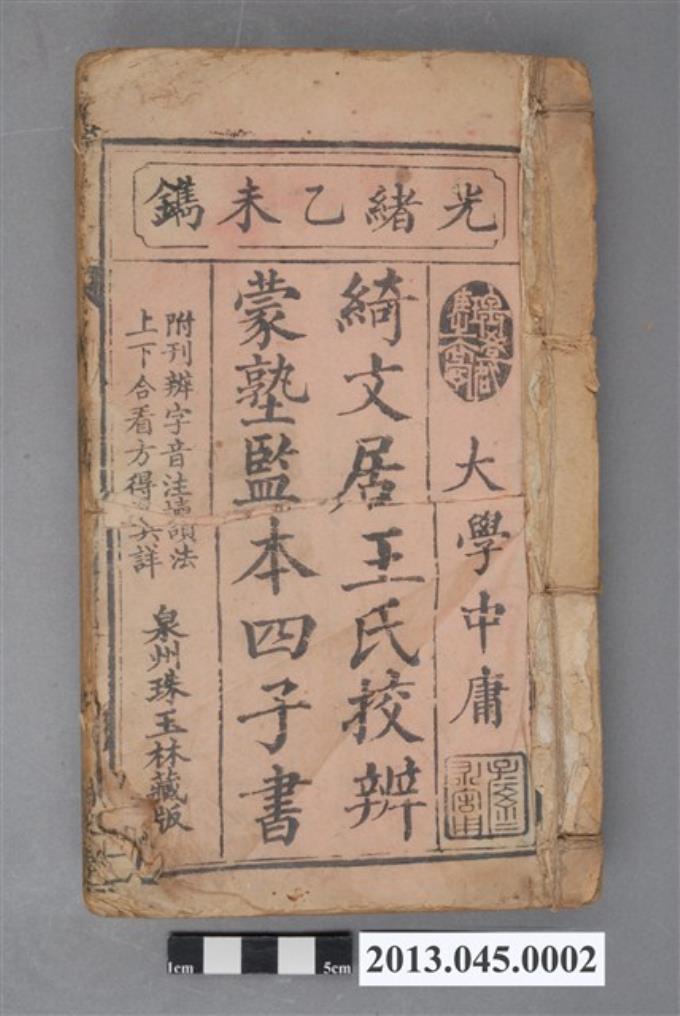 光緒乙未鐫
大學中庸
綺文居王氏挍辨
蒙塾監本四子書
附刊辨字音注讀法
上下合看方得其詳
泉州珠玉林藏版
1cm
5cm
2013.045.0002